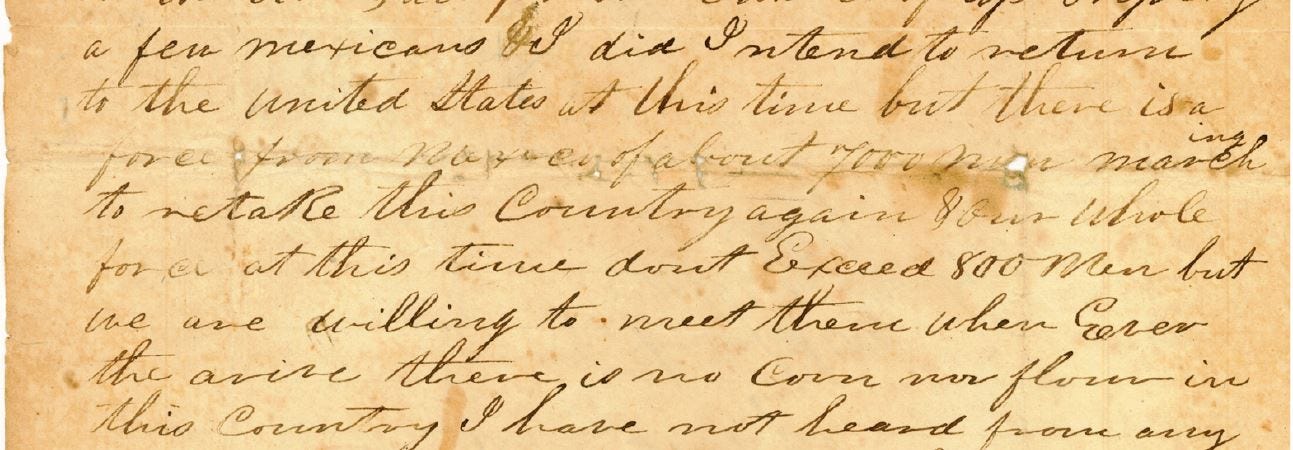 a few mexicans & I did Intend to return
to the united States at this time but there is a
force from Mexico of about 7000 Men marching
to retake this Country again & our whole
force at this time dont Exceed 800 Men but
we are willing to meet them when Ever
the arive there is no Corn nor flour in
this Country I have not heard from any